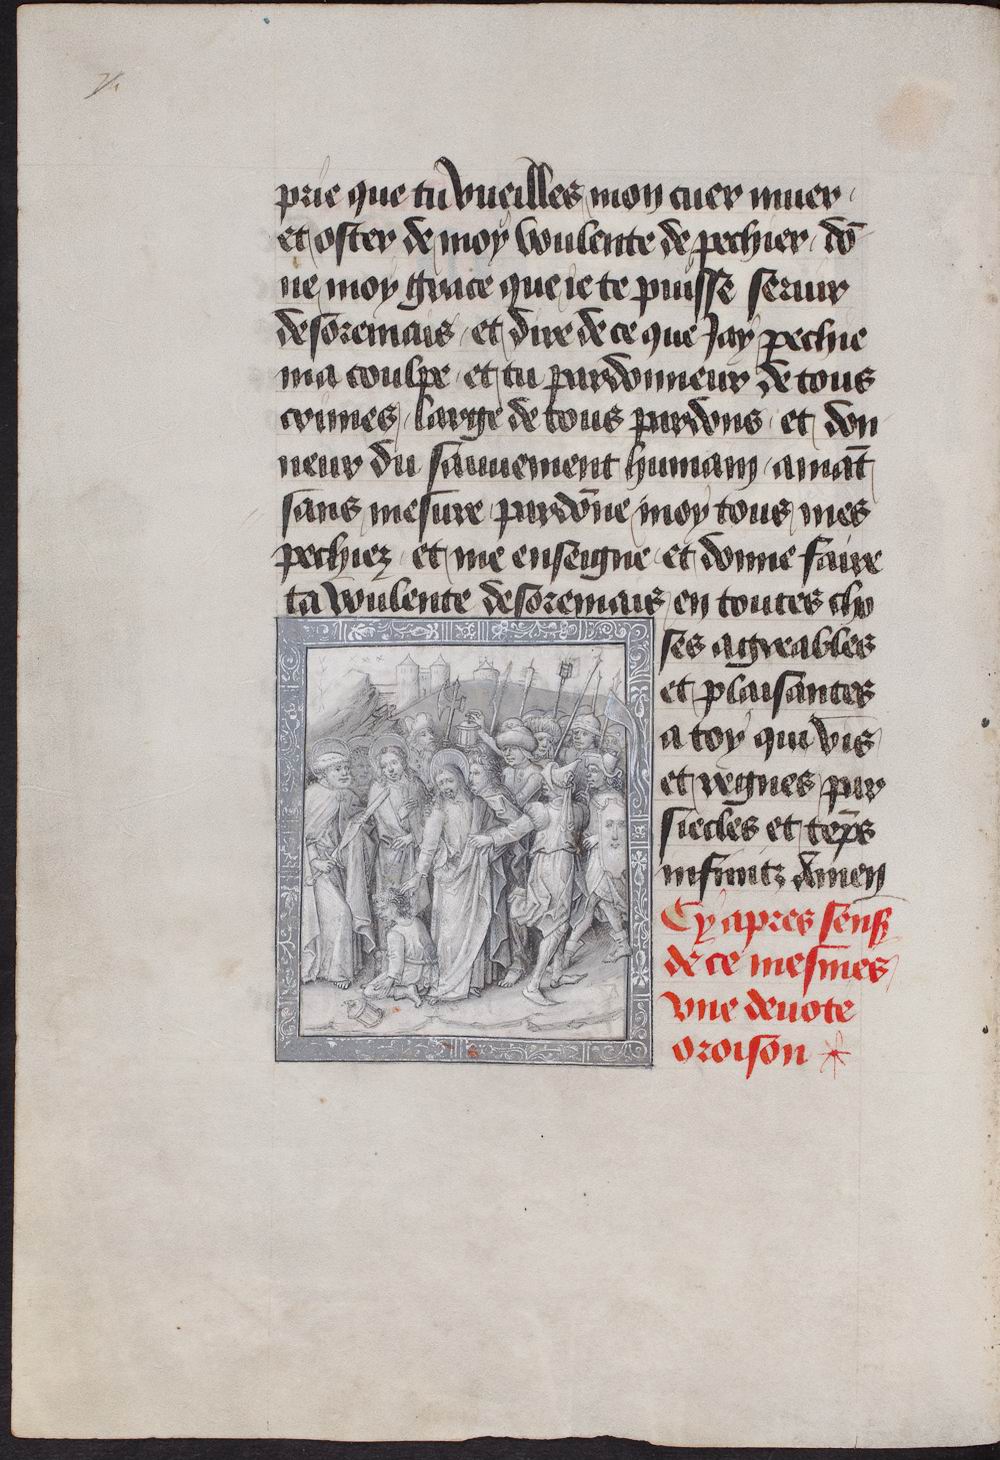 prie que tu vueilles mon cuer muer
et oster de moy voulente de pechier. dō
ne moy grace que ie te puisse seruir
desoremais et dire de ce que Jay pechie
ma coulpe et tu pardonneur de tous
crimes large de tous pardons et don
neur du sauuement humain amāt
sans mesure pardōne moy tous mes
pechiez et me enseigne et donne faire
ta voulente desoremais en toutes cho
ses agreables
et plaisantes
a toy qui vis
et regnes par
siecles et tēps
infinitz Amen
Cy apres sensꝰ
de ce mesmes
vne deuote
oroison